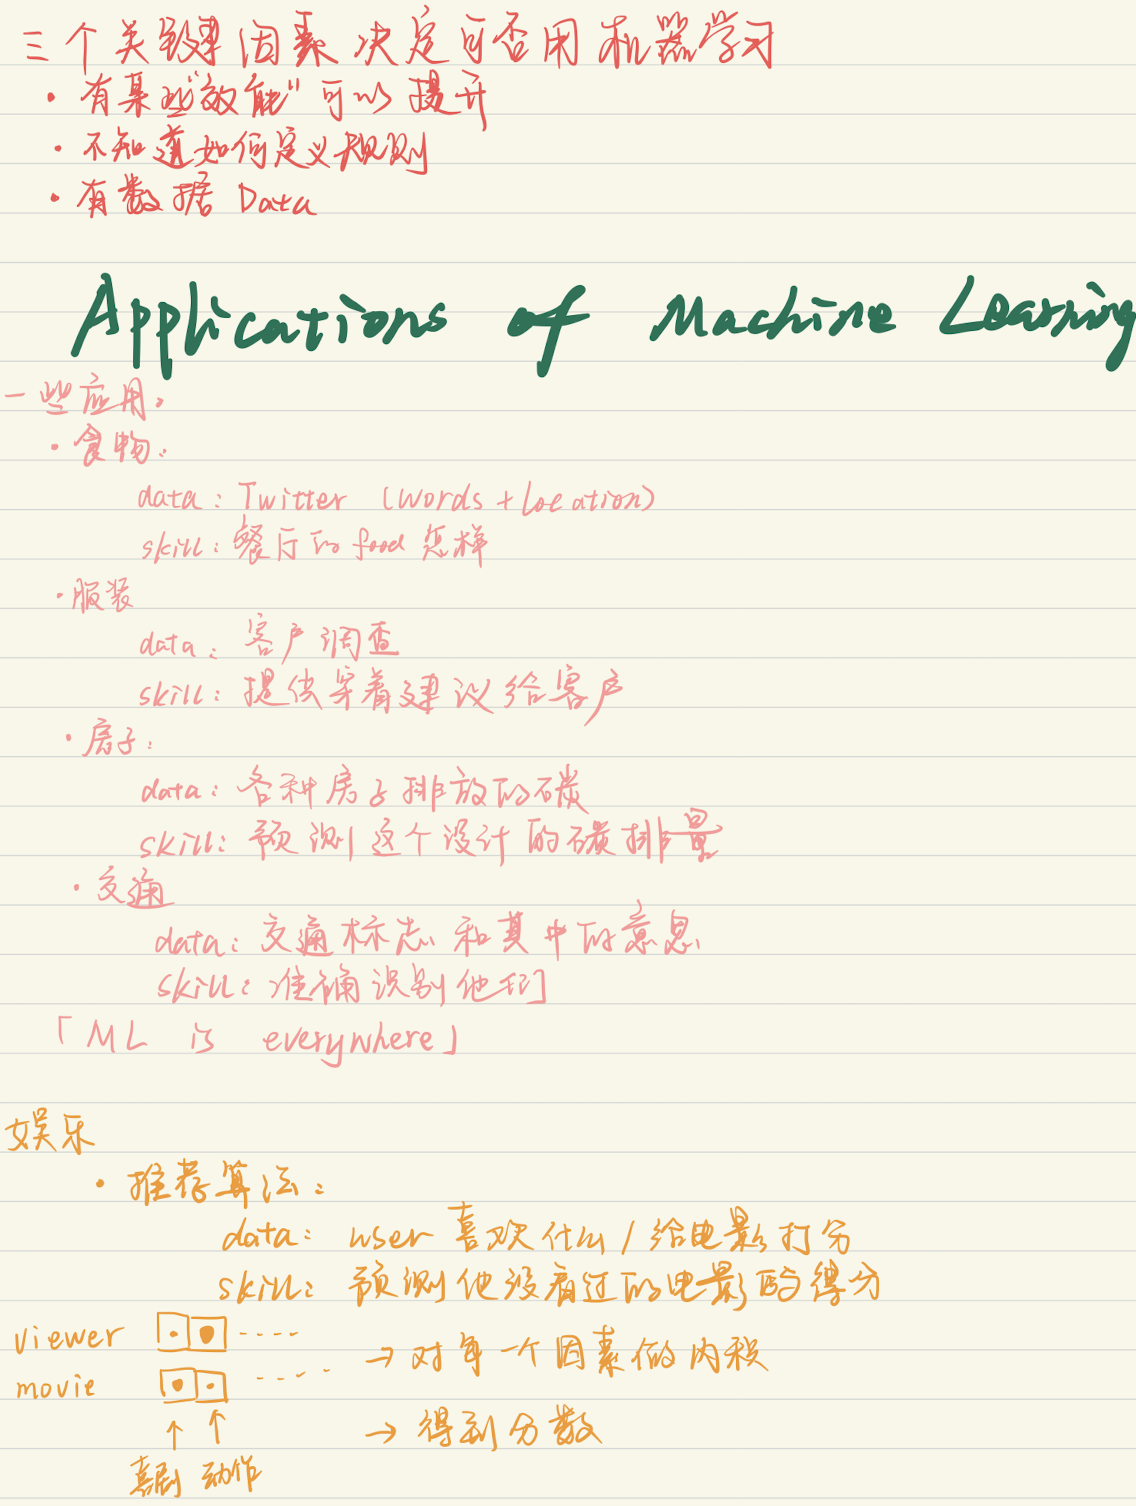 三个关键因素决定可否用机器学习
· 有某些"效能"可以提升
· 不知道如何定义规则
· 有数据 Data
Applications of Machine Learning
一些应用。
· 食物:
data: Twitter (words + location)
skill: 餐厅的food怎样
· 服装
data: 客户调查
skill: 提供穿着建议给客户
· 房子:
data: 各种房子排放的碳
skill: 预测这个设计的碳排量
· 交通
data: 交通标志和其中的意思
skill: 准确识别他们
「ML is everywhere」
娱乐
· 推荐算法:
data: user喜欢什么/给电影打分
skill: 预测他没看过的电影的得分
viewer ····
→ 对每一个因素做内积
movie ····
→ 得到分数
↑ ↑
喜剧 动作